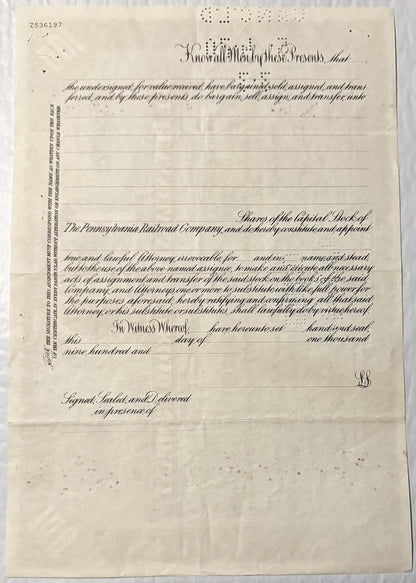 Z536197
Know all Men by these Presents, that
the undersigned, for value received, have bargained, sold, assigned, and trans
ferred, and by these presents do bargain, sell, assign, and transfer, unto
Shares of the Capital Stock of
The Pennsylvania Railroad Company, and do hereby constitute and appoint
true and lawful Attorney, irrevocable, for and in name and stead,
but to the use of the above named assignee, to make and execute all necessary
acts of assignment and transfer of the said stock on the books of the said
Company, and Attorneys one or more to substitute with like full power for
the purposes aforesaid, hereby ratifying and confirming all that said
Attorney, or his substitute or substitutes, shall lawfully do by virtue hereof.
In Witness Whereof, have hereunto set hand and seal,
this day of one thousand
nine hundred and
L.S.
Signed, Sealed, and Delivered
in presence of
NOTE THE SIGNATURE TO THIS ASSIGNMENT MUST CORRESPOND WITH THE NAME AS WRITTEN UPON THE FACE
OF THE CERTIFICATE, IN EVERY PARTICULAR, WITHOUT ALTERATION OR ENLARGEMENT, OR ANY CHANGE WHATEVER.